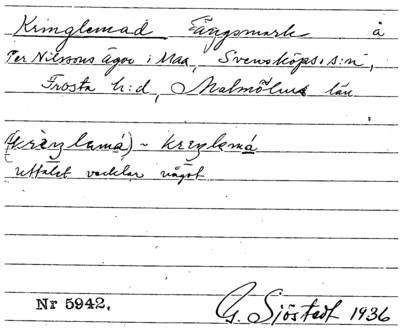 Kringlemad Ängsmark å
Per Nilssons ägor i Maa, Svensköps s:n,
Frosta h:d, Malmöhus län
(kriŋlamá) ~ kreŋlamá
uttalet vacklar något
Nr 5942. G. Sjöstedt 1936